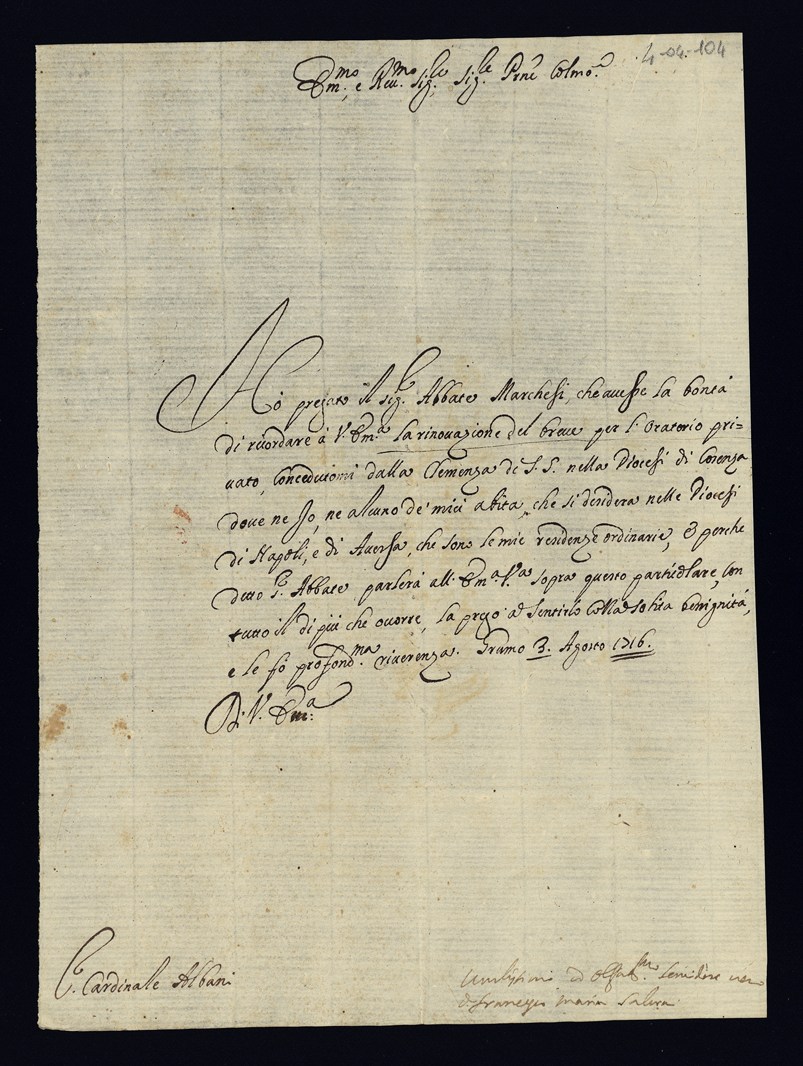 4-04-104
Em.mo e Reu.mo Sig.re Sig.re Prne Colmo.
Ho pregato il Sig.r Abbate Marchesi, che auesse la bontà
di ricordare à V. Em.a la rinouazione del breue per l'Oratorio pri=
uato, concedutomi dalla Clemenza di S. S. nella Diocesi di Cosenza
doue ne Io, ne alcuno de' miei abita, che si desidera nelle Diocesi
di Napoli, e di Auersa, che sono le mie residenze ordinarie, E perche
detto S.r Abbate parlerà all'Em.a V.a sopra questo particolare, con
tutto il di più che occorre, la prego à sentirlo colla solita benignità,
e le fò profond.ma riuerenza. Grumo 3. Agosto 1716.
Di V. Em.a
S.r Cardinale Albani
Seruidore uero
d. Francesco Maria